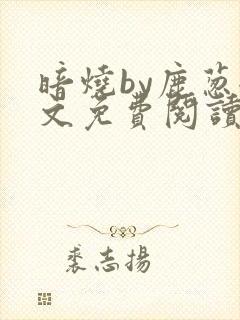 暗燒by鹿蔥
文免費閱讀
裘志揚